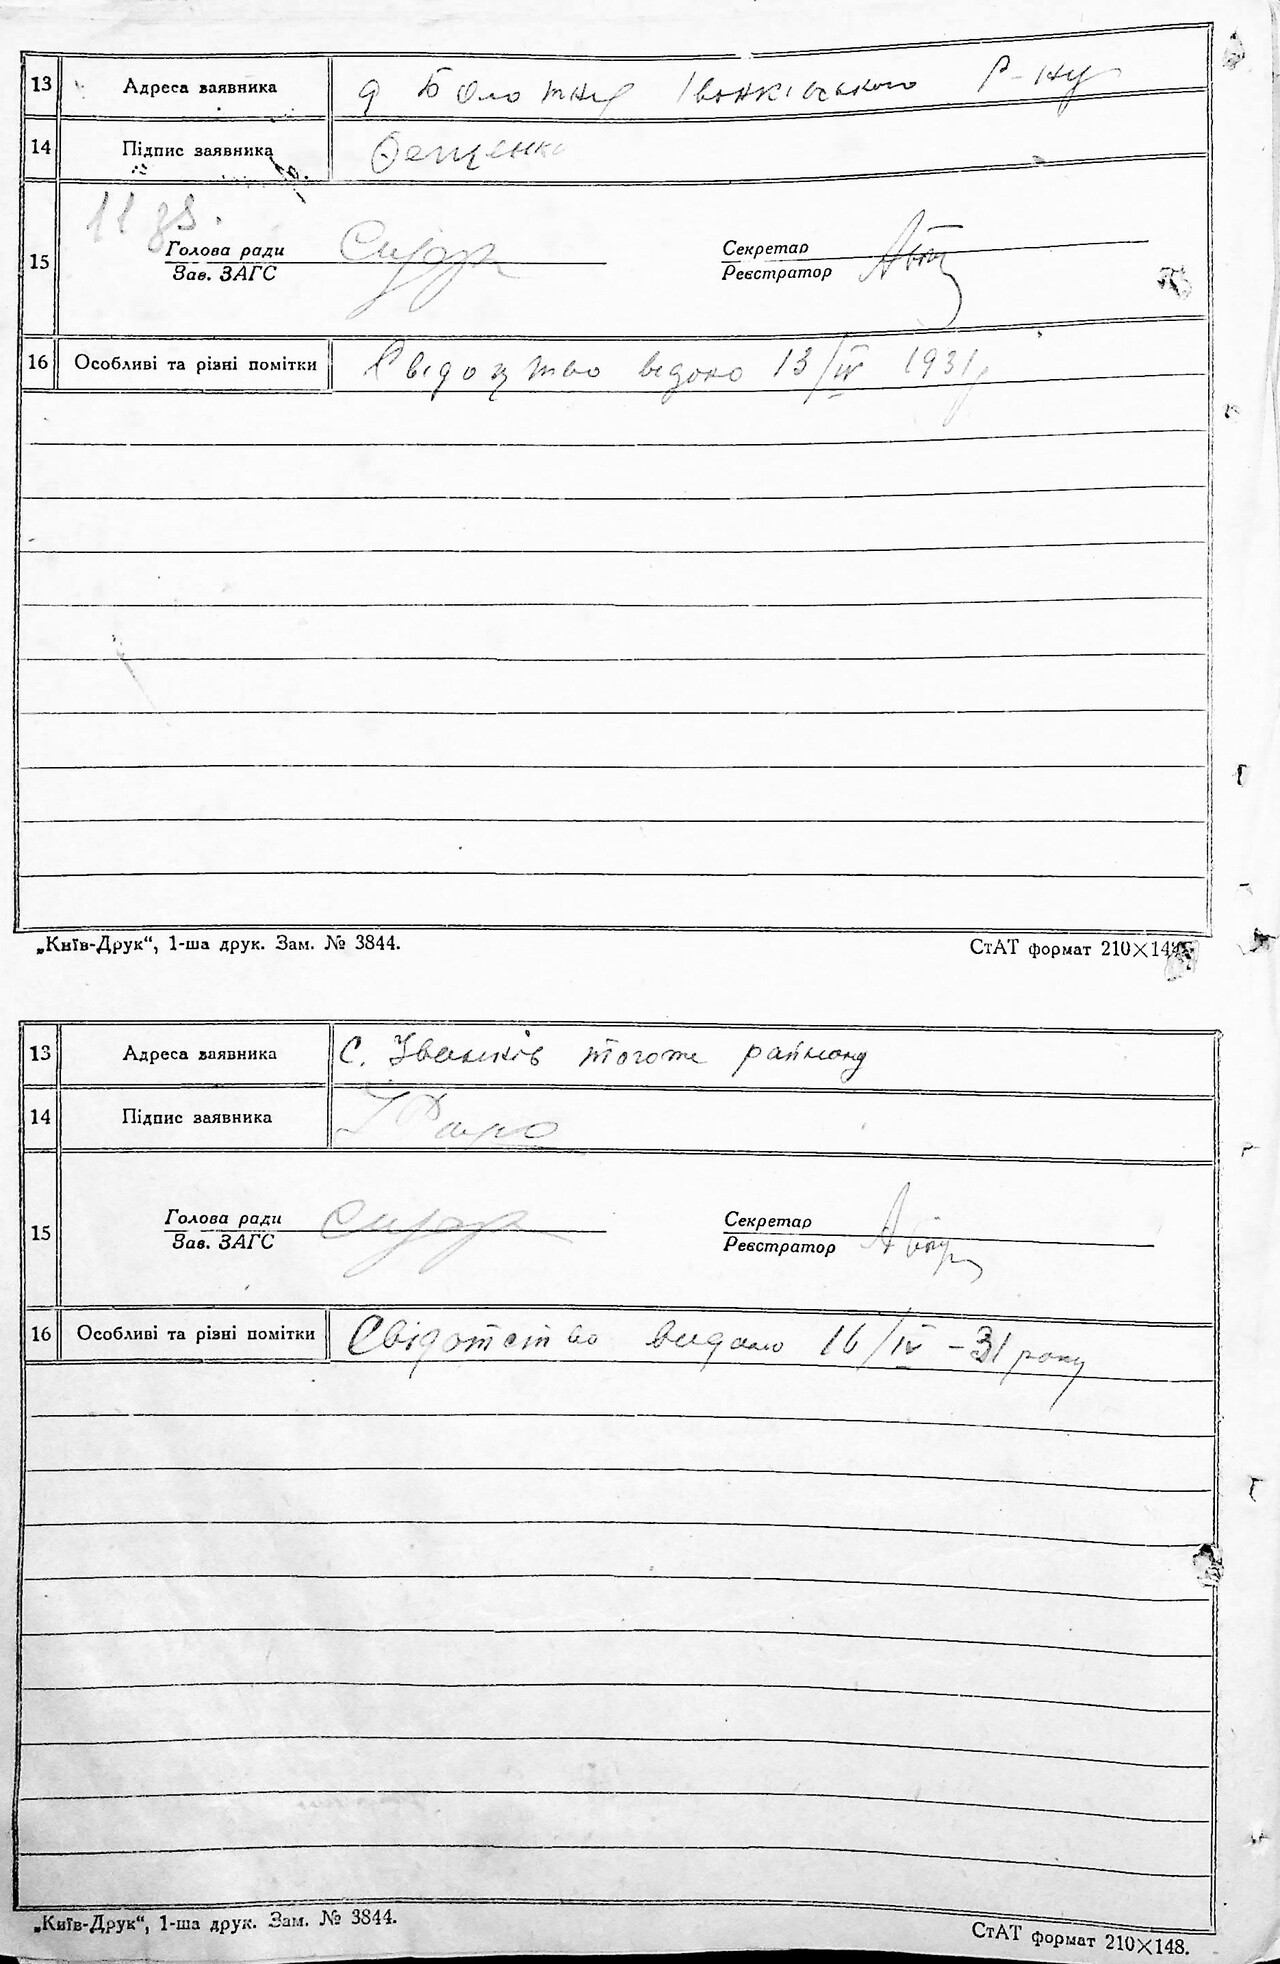 13 Адреса заявника Болотня Іванківського Р-ну
14 Підпис заявника
15 Голова ради Секретар
Зав. ЗАГС Реєстратор
16 Особливі та різні помітки Свідоцтво видоно 13/IV 1931
„Київ-Друк“, 1-ша друк. Зам. № 3844. СтАТ формат 210×148
13 Адреса заявника С. Іванків тогоже района
14 Підпис заявника
15 Голова ради Секретар
Зав. ЗАГС Реєстратор
16 Особливі та різні помітки Свідотство видано 16/IV -31 року
„Київ-Друк“, 1-ша друк. Зам. № 3844. СтАТ формат 210×148.